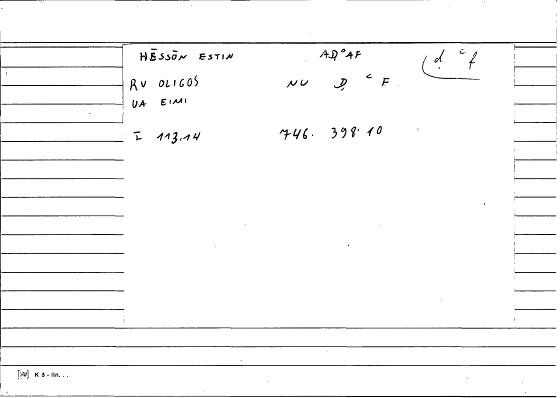 HĒSSŌN ESTIN AḌᶜAF ḍ ᶜ f
RV OLIGOS NU Ḍ ᶜ F
UA EIMI
I 113.14 746. 398.10
K 5 - lin...